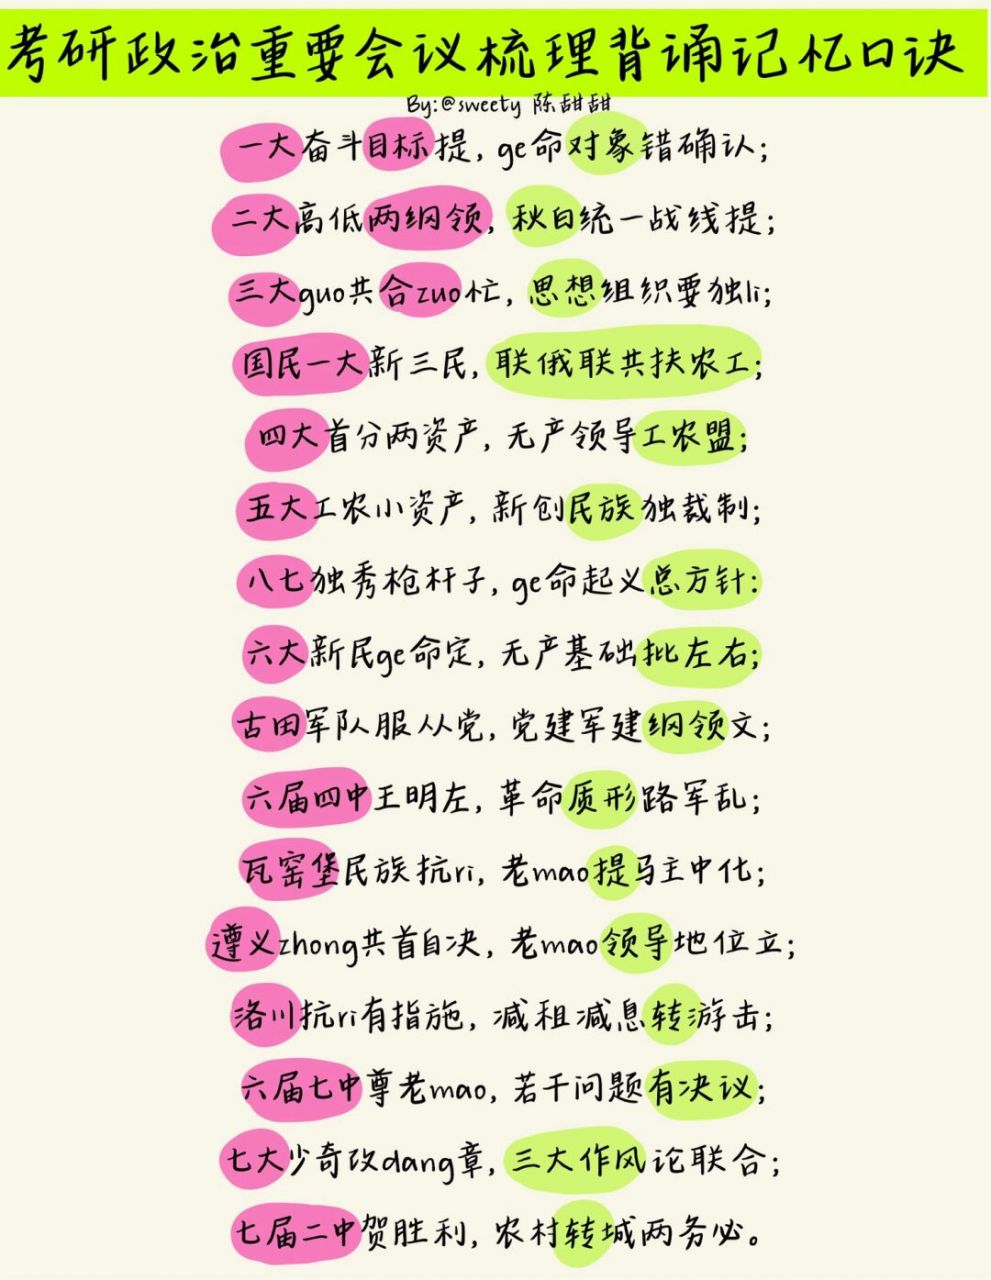 考研政治重要会议梳理背诵记忆口诀
By:@sweety 陈甜甜
一大奋斗目标提，ge命对象错确认；
二大高低两纲领，秋白统一战线提；
三大guo共合zuo忙，思想组织要独li；
国民一大新三民，联俄联共扶农工；
四大首分两资产，无产领导工农盟；
五大工农小资产，新创民族独裁制；
八七独秀枪杆子，ge命起义总方针：
六大新民ge命定，无产基础批左右；
古田军队服从党，党建军建纲领文；
六届四中王明左，革命质形路军乱；
瓦窑堡民族抗ri，老mao提马主中化；
遵义zhong共首自决，老mao领导地位立；
洛川抗ri有指施，减租减息转游击；
六届七中尊老mao，若干问题有决议；
七大少奇改dang章，三大作风论联合；
七届二中贺胜利，农村转城两务必。